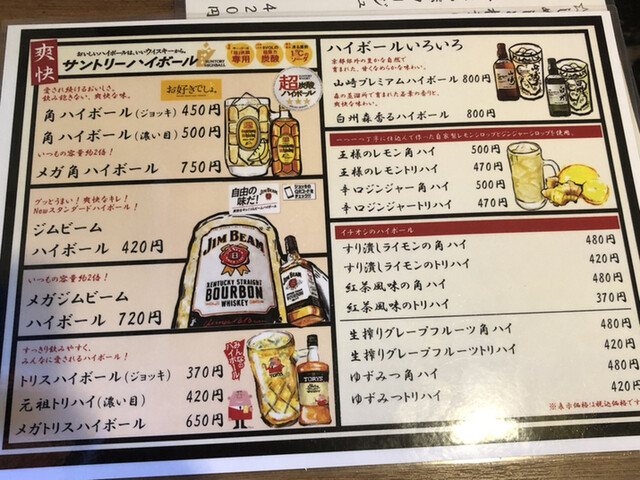 420円
爽快
おいしいハイボールは、いいウイスキーから。
サントリーハイボール
専用
炭酸
超炭酸ハイボール
愛され続けるおいしさ。
飲み飽きない、爽快な味。
お好きでしょ。
角ハイボール(ジョッキ) 450円
角ハイボール(濃い目) 500円
いつもの容量約2倍!
メガ角ハイボール 750円
グッとうまい!爽快なキレ!
Newスタンダードハイボール!
自由の味だ!
ジムビーム
ハイボール 420円
JIM BEAM
KENTUCKY STRAIGHT
BOURBON
WHISKEY
いつもの容量約2倍!
メガジムビーム
ハイボール 720円
すっきり飲みやすく、
みんなに愛されるハイボール!
みんなのハイボール
トリスハイボール(ジョッキ) 370円
元祖トリハイ(濃い目) 420円
メガトリスハイボール 650円
TORYS
ハイボールいろいろ
京都郊外の豊かな自然で
育まれた、甘くなめらかな味わい。
山崎プレミアムハイボール 800円
森の蒸溜所で育まれた若葉の香りと、
爽快な味わい。
白州森香るハイボール 800円
一つ一つ丁寧に仕込んで作った自家製レモンシロップとジンジャーシロップを使用。
王様のレモン角ハイ 500円
王様のレモントリハイ 470円
辛口ジンジャー角ハイ 500円
辛口ジンジャートリハイ 470円
イチオシのハイボール
すり潰しライモンの角ハイ 480円
すり潰しライモンのトリハイ 420円
紅茶風味の角ハイ 480円
紅茶風味のトリハイ 370円
生搾りグレープフルーツ角ハイ 480円
生搾りグレープフルーツトリハイ 420円
ゆずみつ角ハイ 480円
ゆずみつトリハイ 420円
※表示価格は税込価格です